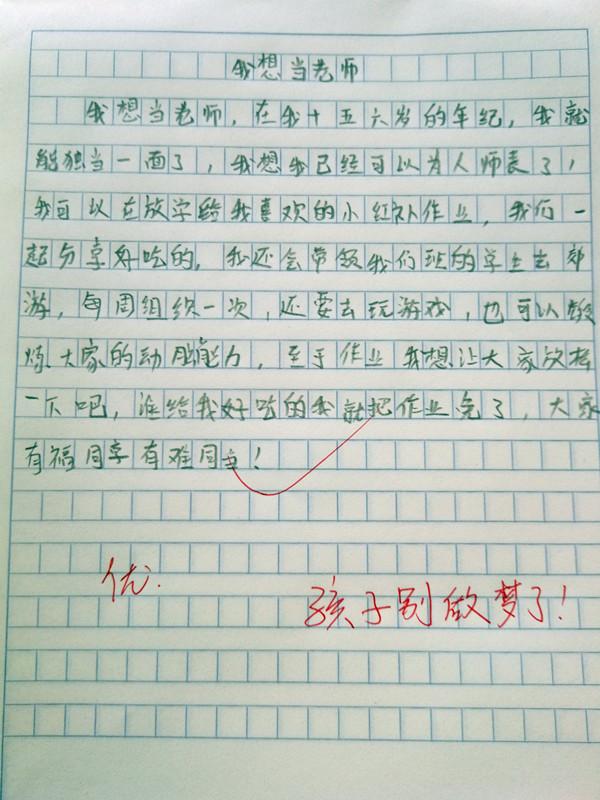 我想当老师
我想当老师，在我十五六岁的年纪，我就
能独当一面了，我想我已经可以为人师表了，
我可以在放学给我喜欢的小红补作业，我们一
起分享好吃的，我还会带领我们班的学生去郊
游，每周组织一次，还要去玩游戏，也可以锻
炼大家的动脑能力，至于作业我想让大家放松
一下吧，谁给我好吃的我就把作业免了，大家
有福同享有难同当！
优.
孩子别做梦了！